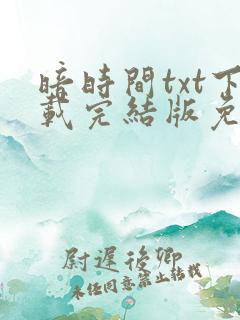 暗時間txt下
載完結版免
尉遲後卿
未任同意禁止转载